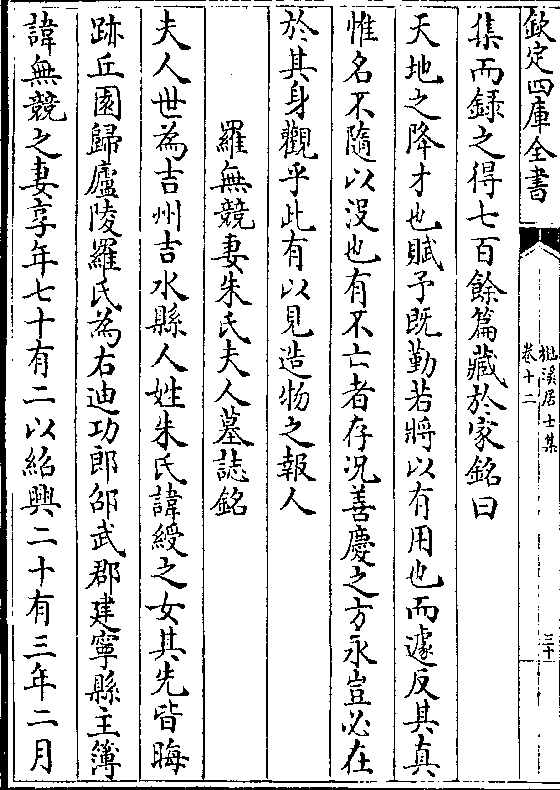 欽定四庫全書
盧溪居士集
卷十二
三十
集而録之得七百餘篇藏於家銘曰
天地之降才也賦予既勤若將以有用也而遽反其真
惟名不隨以没也有不亡者存况善慶之方永豈必在
於其身觀乎此有以見造物之報人
羅無競妻朱氏夫人墓誌銘
夫人世為吉州吉水縣人姓朱氏諱綬之女其先皆晦
跡丘園歸廬陵羅氏為右迪功郎邵武郡建寧縣主簿
諱無競之妻享年七十有二以紹興二十有三年二月